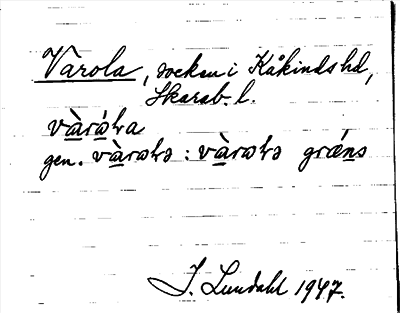 Varola, socken i Kåkinds hd,
Skarab. l.
và̱rώ̱ɫa
gen. và̱rωɫə : và̱rωɫə grǽn̲s
I. Lundahl 1947.